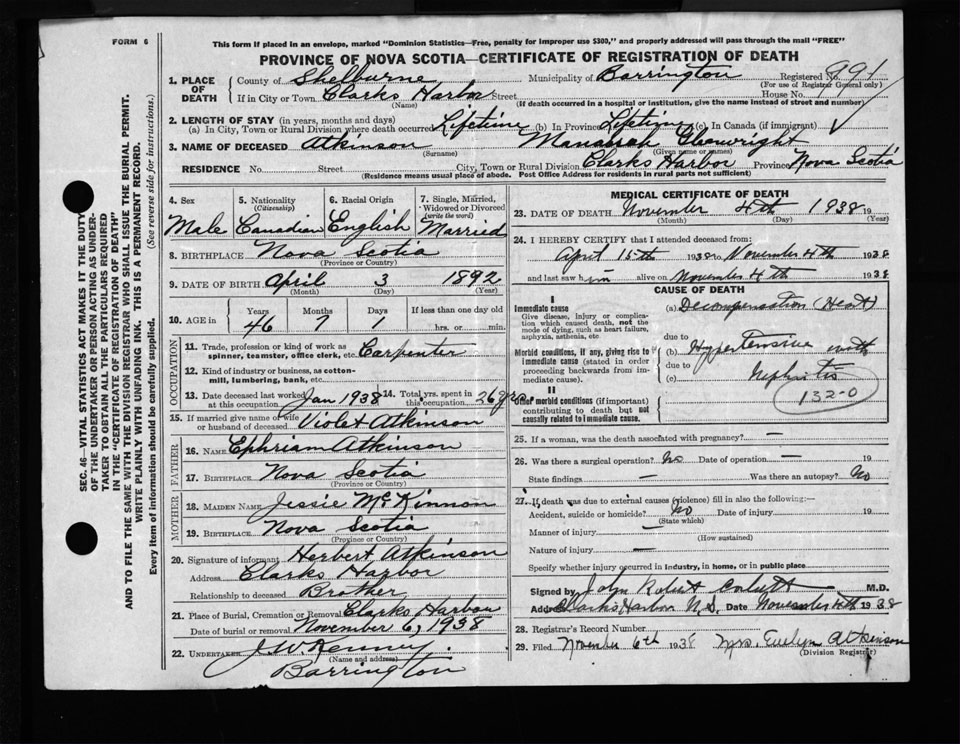 FORM 6
This form if placed in an envelope, marked "Dominion Statistics—Free, penalty for improper use $300," and properly addressed will pass through the mail "FREE"
PROVINCE OF NOVA SCOTIA—CERTIFICATE OF REGISTRATION OF DEATH
1. PLACE OF DEATH County of Shelburne Municipality of Barrington Registered No. 991
(For use of Registrar General only)
If in City or Town Clarks Harbor Street House No.
(Name) (If death occurred in a hospital or institution, give the name instead of street and number)
2. LENGTH OF STAY (in years, months and days)
(a) In City, Town or Rural Division where death occurred Lifetime (b) In Province Lifetime (c) In Canada (if immigrant)
3. NAME OF DECEASED Atkinson Manassah
(Surname) (Given name or names)
RESIDENCE No. Street City, Town or Rural Division Clarks Harbor Province Nova Scotia
(Residence means usual place of abode. Post Office Address for residents in rural parts not sufficient)
4. Sex Male
5. Nationality (Citizenship) Canadian
6. Racial Origin English
7. Single, Married, Widowed or Divorced (write the word) Married
8. BIRTHPLACE Nova Scotia
(Province or Country)
9. DATE OF BIRTH April 3 1892
(Month) (Day) (Year)
10. AGE in Years Months Days If less than one day old
46 7 1 hrs. or min.
OCCUPATION
11. Trade, profession or kind of work as spinner, teamster, office clerk, etc. Carpenter
12. Kind of industry or business, as cotton-mill, lumbering, bank, etc.
13. Date deceased last worked at this occupation Jan 1938 14. Total yrs. spent in this occupation 26 yrs
15. If married give name of wife or husband of deceased Violet Atkinson
FATHER
16. NAME Ephriam Atkinson
17. BIRTHPLACE Nova Scotia
(Province or Country)
MOTHER
18. MAIDEN NAME Jessie McKinnon
19. BIRTHPLACE Nova Scotia
(Province or Country)
20. Signature of informant Herbert Atkinson
Address Clarks Harbor
Relationship to deceased Brother
21. Place of Burial, Cremation or Removal Clarks Harbor
Date of burial or removal November 6, 1938
22. UNDERTAKER J.W. Kenney
(Name and address)
Barrington
MEDICAL CERTIFICATE OF DEATH
23. DATE OF DEATH November 4th 1938 19
(Month) (Day) (Year)
24. I HEREBY CERTIFY that I attended deceased from:
April 15th 1938 to November 4th 1938
and last saw him alive on November 4th 1938
CAUSE OF DEATH
I
Immediate cause (a) Decompensation (Heart)
Give disease, injury or complication which caused death, not the mode of dying, such as heart failure, asphyxia, asthenia, etc.
due to
Morbid conditions, if any, giving rise to immediate cause (stated in order proceeding backwards from immediate cause).
(b) Hypertensive with
due to
(c) Nephritis
132-0
II
Other morbid conditions (if important) contributing to death but not causally related to immediate cause.
25. If a woman, was the death associated with pregnancy? —
26. Was there a surgical operation? No Date of operation — 19
State findings — Was there an autopsy? No
27. If death was due to external causes (violence) fill in also the following:—
Accident, suicide or homicide? No Date of injury 19
(State which)
Manner of injury —
(How sustained)
Nature of injury —
Specify whether injury occurred in industry, in home, or in public place
Signed by John Robert M.D.
Address Clarks Harbor N.S. Date November 4th 1938
28. Registrar's Record Number
29. Filed November 6th 1938 Mrs. Evelyn Atkinson
(Division Registrar)
SEC. 46—VITAL STATISTICS ACT MAKES IT THE DUTY
OF THE UNDERTAKER OR PERSON ACTING AS UNDER-
TAKER TO OBTAIN ALL THE PARTICULARS REQUIRED
IN THE "CERTIFICATE OF REGISTRATION OF DEATH"
AND TO FILE THE SAME WITH THE DIVISION REGISTRAR WHO SHALL ISSUE THE BURIAL PERMIT.
WRITE PLAINLY WITH UNFADING INK. THIS IS A PERMANENT RECORD.
Every item of information should be carefully supplied. (See reverse side for instructions.)